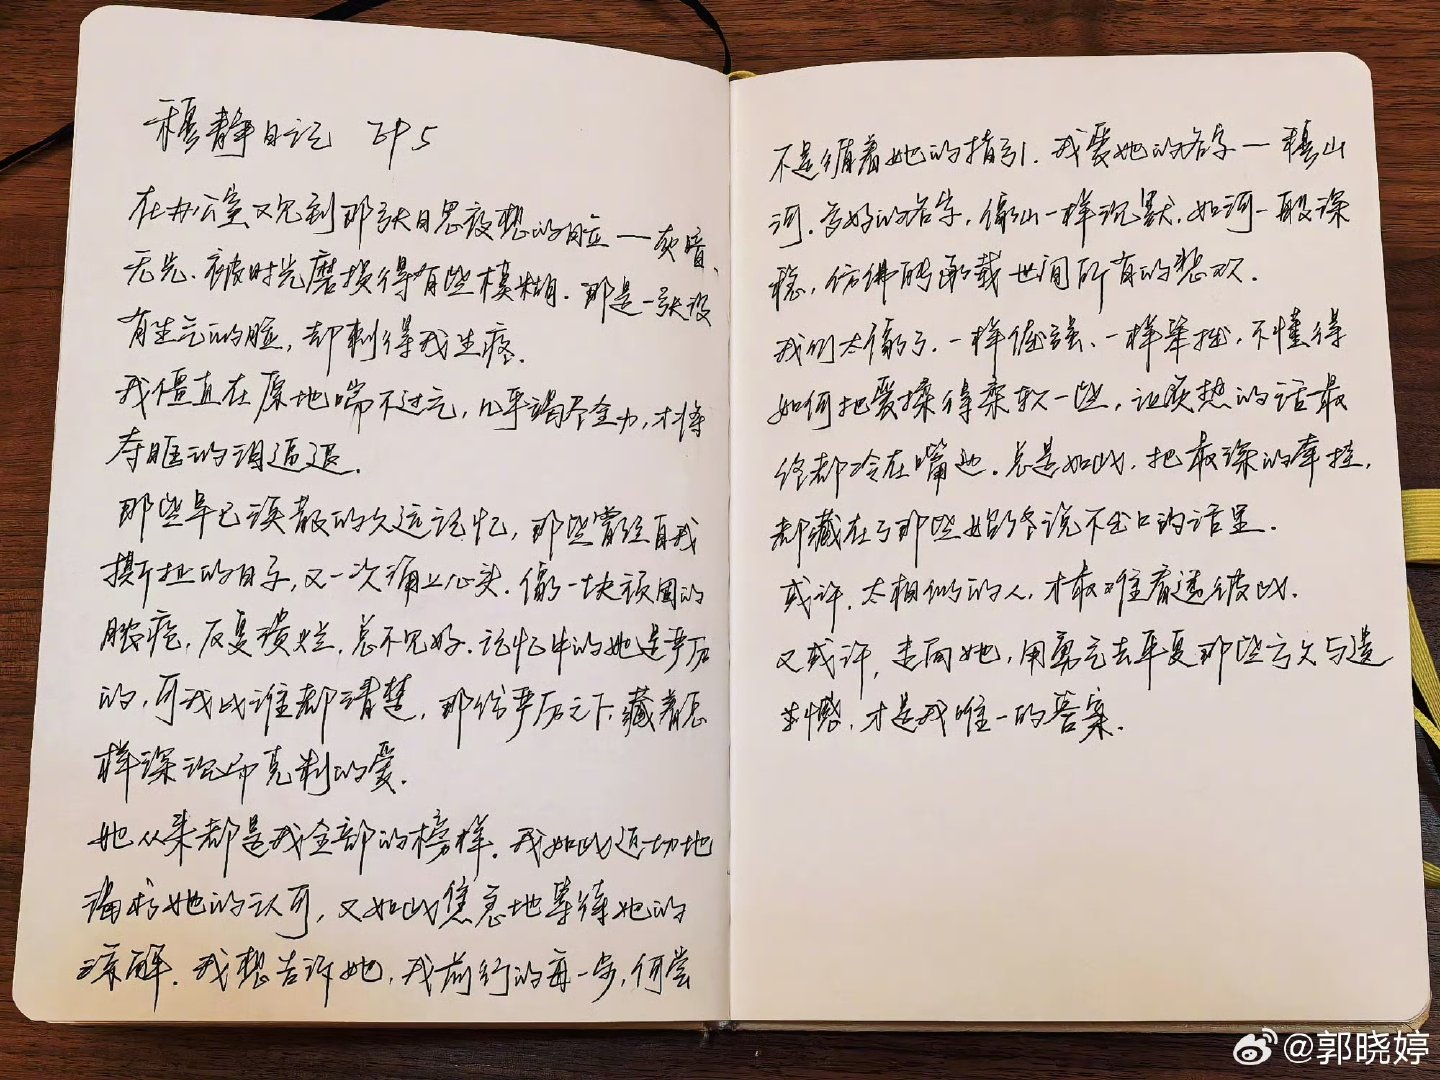 穆静日记 EP5
在办公室又见到那张日思夜想的脸——灰暗、
无光、被时光磨损得有些模糊. 那是一张没
有生气的脸, 却刺得我生疼.
我僵直在原地喘不过气, 几乎竭尽全力, 才将
夺眶的泪逼退.
那些早已涣散的久远记忆, 那些曾经自我
撕扯的日子, 又一次涌上心头. 像一块顽固的
脓疮, 反复溃烂, 总不见好. 记忆中的她是严厉
的, 可我比谁都清楚, 那份严厉之下, 藏着怎
样深沉而克制的爱.
她从来都是我全部的榜样. 我如此迫切地
渴求她的认可, 又如此焦急地等待她的
谅解. 我想告诉她, 我前行的每一步, 何尝
不是循着她的指引. 我爱她的名字—穆山
河. 多好的名字, 像山一样沉默, 如河一般深
稳, 仿佛能承载世间所有的悲欢.
我们太像了. 一样倔强、一样笨拙, 不懂得
如何把爱揉得柔软一些, 让炙热的话最
终都冷在嘴边. 总是如此, 把最深的牵挂,
都藏在了那些始终说不出口的话里.
或许, 太相似的人, 才最难看透彼此.
又或许, 走向她, 用勇气去平复那些亏欠与遗
憾, 才是我唯一的答案.
@郭晓婷